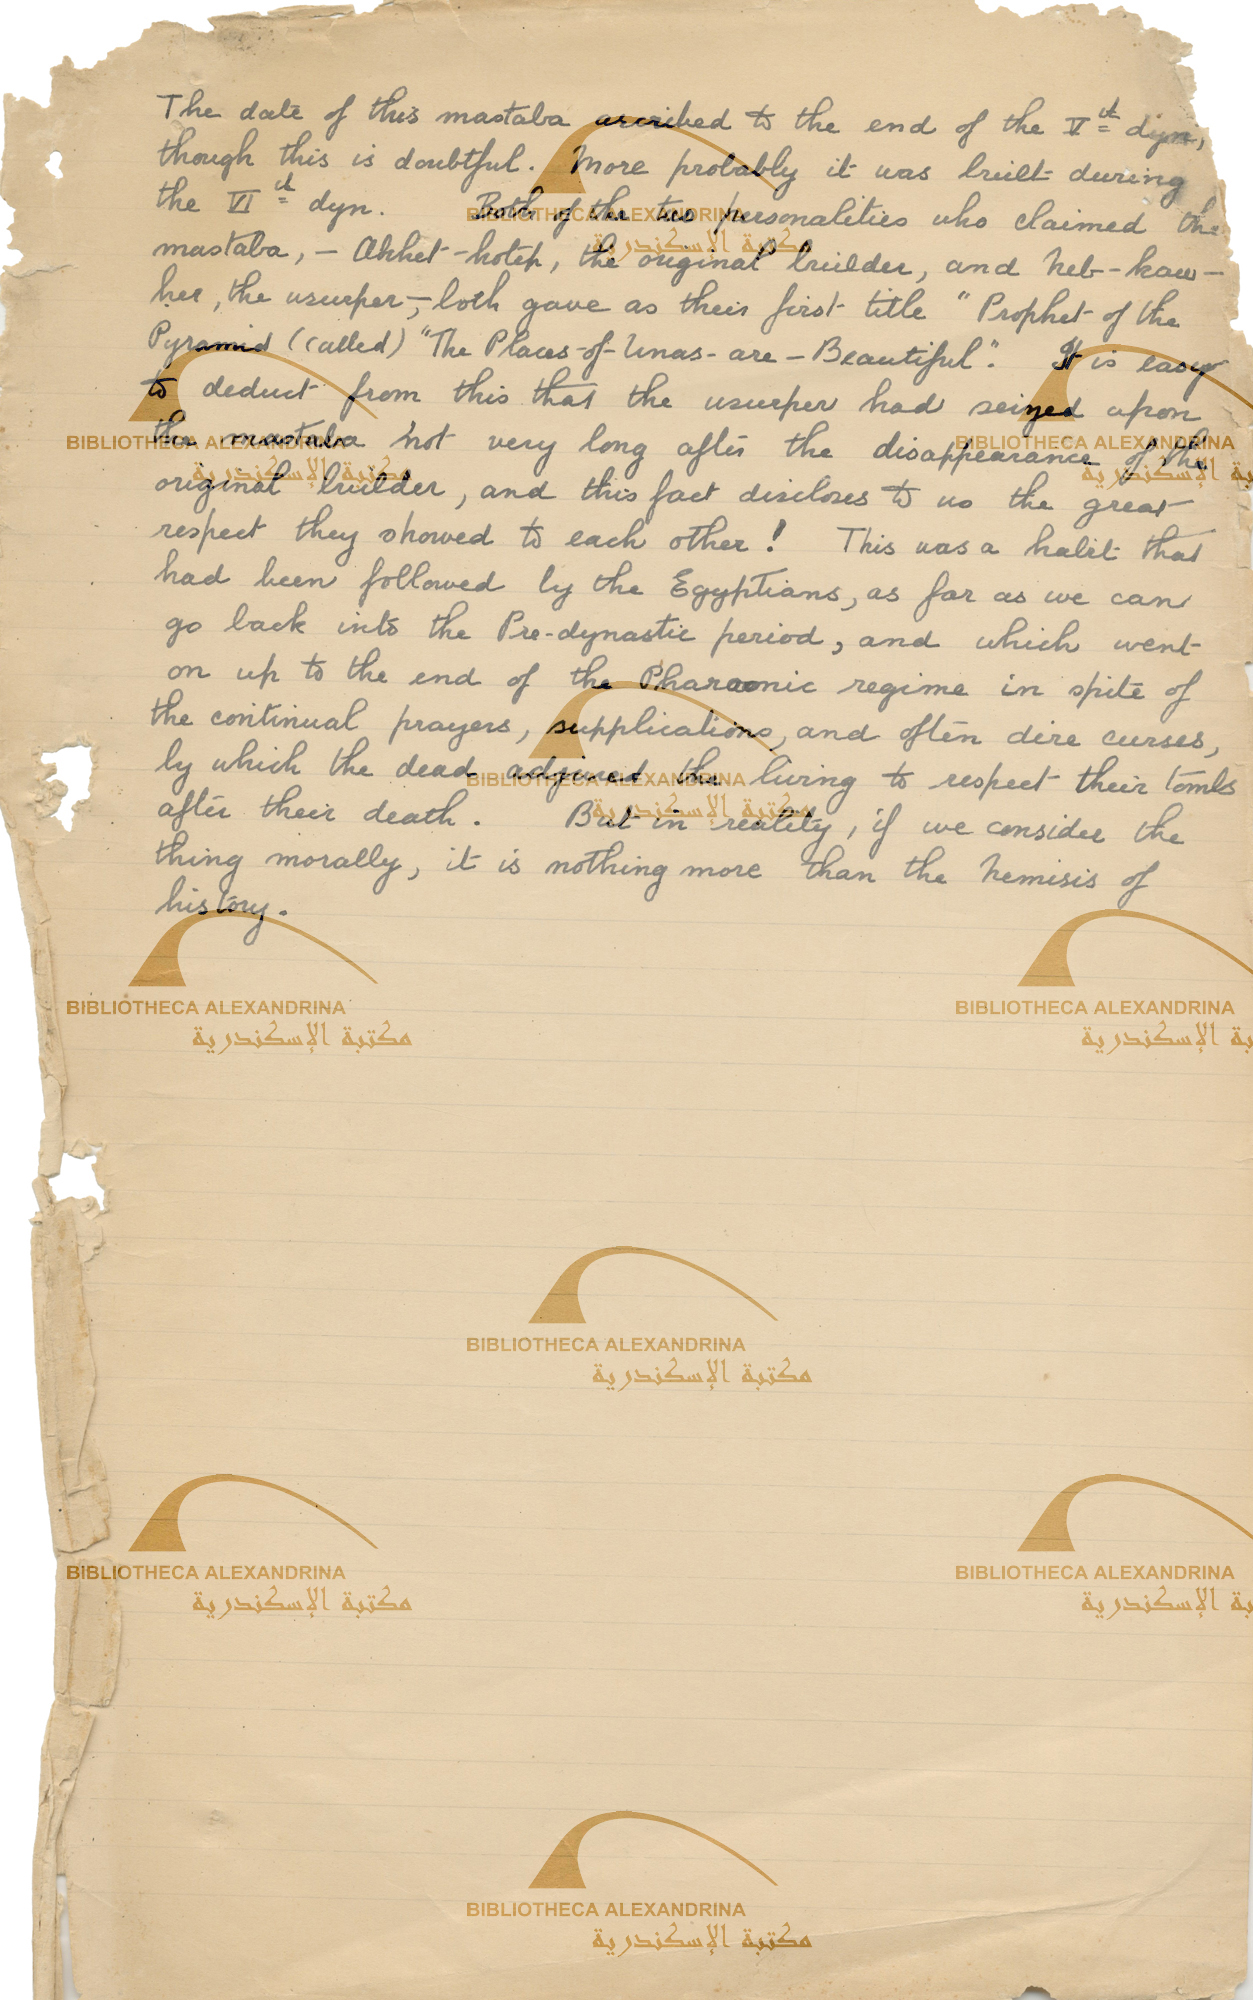 The date of this mastaba ascribed to the end of the V th dyn,
though this is doubtful. More probably it was built during
the VI th dyn. Both of the two personalities who claimed the
mastaba, – Akhet-hotep, the original builder, and Neb-kaw-
her, the usurper, – both gave as their first title "Prophet of the
Pyramid (called) "The Places-of-Unas-are-Beautiful". It is easy
to deduct from this that the usurper had seized upon
the mastaba not very long after the disappearance of the
original builder, and this fact discloses to us the great
respect they showed to each other! This was a habit that
had been followed by the Egyptians, as far as we can
go back into the Pre-dynastic period, and which went
on up to the end of the Pharaonic regime in spite of
the continual prayers, supplications, and often dire curses,
by which the dead adjured the living to respect their tombs
after their death. But in reality, if we consider the
thing morally, it is nothing more than the Nemisis of
history.
BIBLIOTHECA ALEXANDRINA
مكتبة الإسكندرية